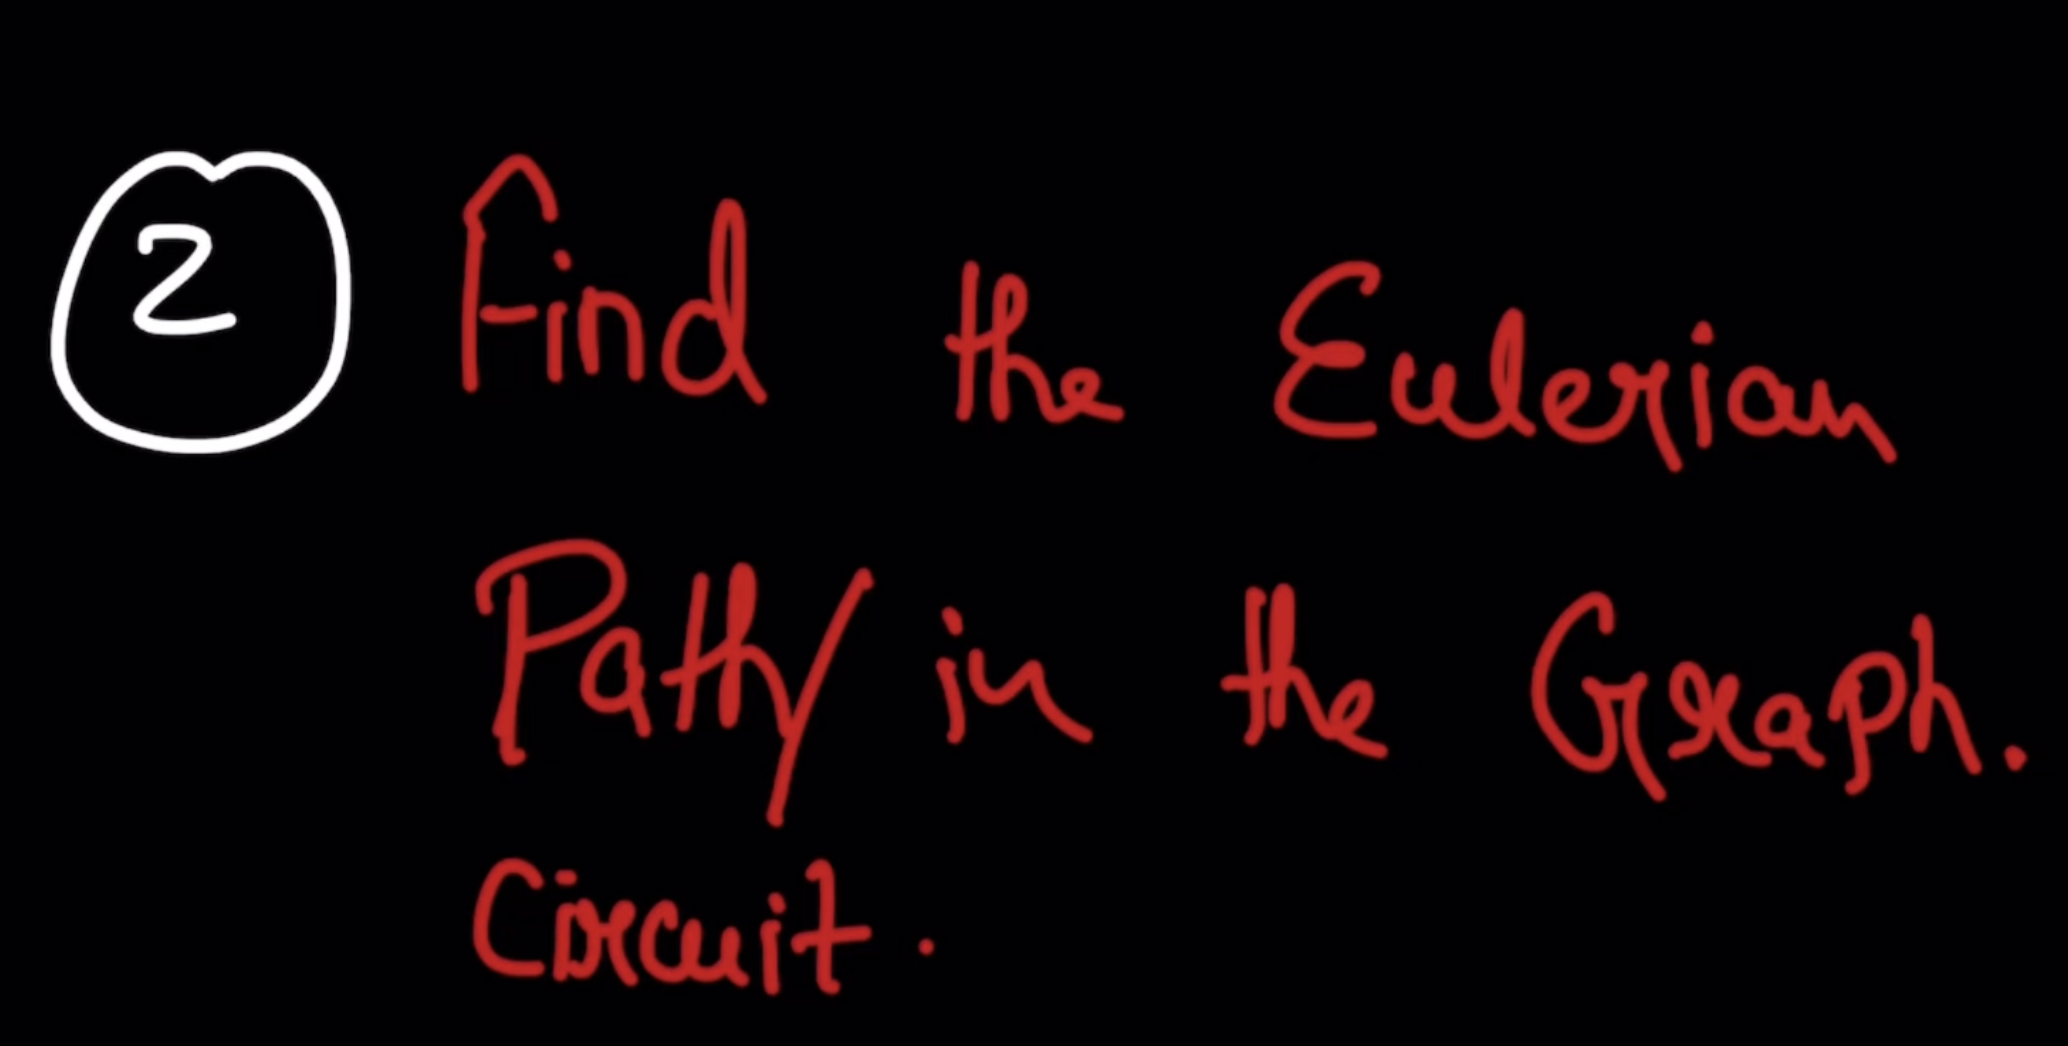 2 Find the Eulerian
Path/ in the Graph.
Circuit.